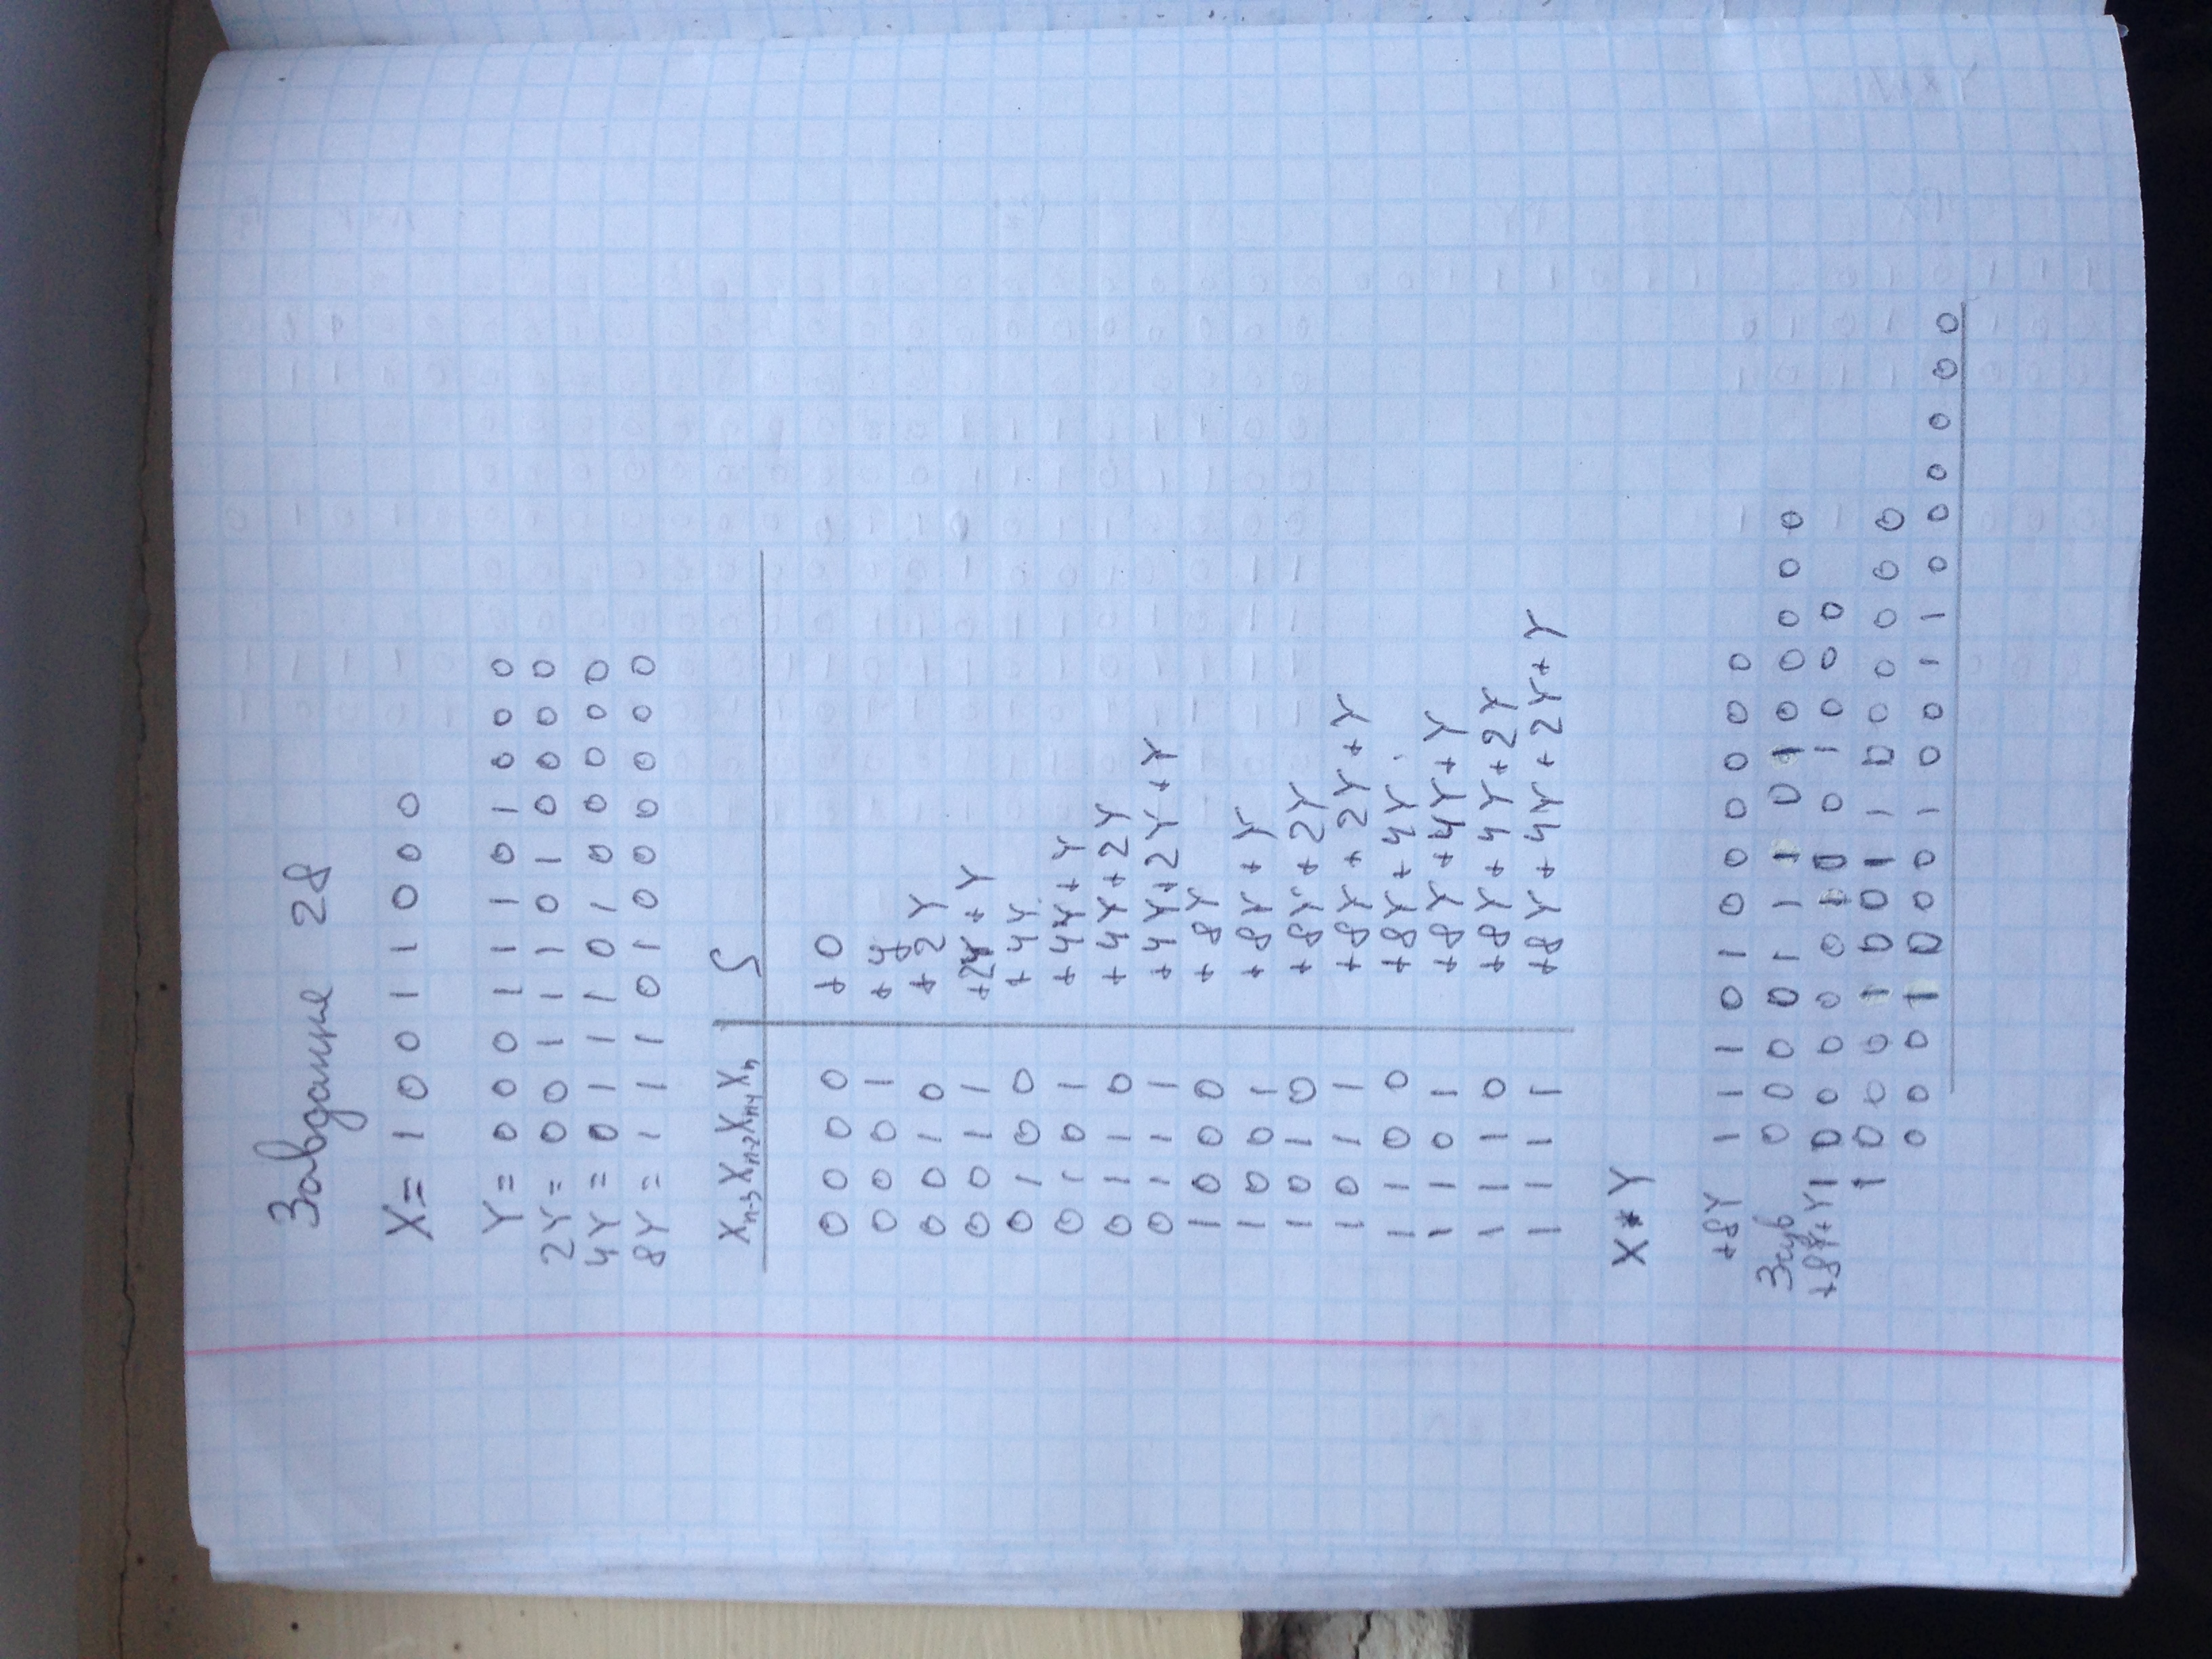 Завдання 28
X= 1 0 0 1 1 0 0 0
Y= 0 0 0 1 1 1 0 1 0 0 0
2Y= 0 0 1 1 1 0 1 0 0 0 0
4Y= 0 1 1 1 0 1 0 0 0 0 0
8Y= 1 1 1 0 1 0 0 0 0 0 0
Xn-3 Xn-2 Xn-1 Xn S
0 0 0 0 +0
0 0 0 1 +y
0 0 1 0 +2Y
0 0 1 1 +2Y+Y
0 1 0 0 +4Y
0 1 0 1 +4Y+Y
0 1 1 0 +4Y+2Y
0 1 1 1 +4Y+2Y+Y
1 0 0 0 +8Y
1 0 0 1 +8Y+Y
1 0 1 0 +8Y+2Y
1 0 1 1 +8Y+2Y+Y
1 1 0 0 +8Y+4Y
1 1 0 1 +8Y+4Y+Y
1 1 1 0 +8Y+4Y+2Y
1 1 1 1 +8Y+4Y+2Y+Y
X*Y
+8Y 1 1 1 0 1 0 0 0 0 0 0
Зсув 0 0 0 0 1 1 1 0 1 0 0 0 0 0
+8Y+Y 1 0 0 0 0 0 1 0 0 1 0 0 0
1 0 0 0 1 0 0 1 1 0 0 0 0 0 0
0 0 0 1 0 0 0 1 0 0 1 1 0 0 0 0 0 0